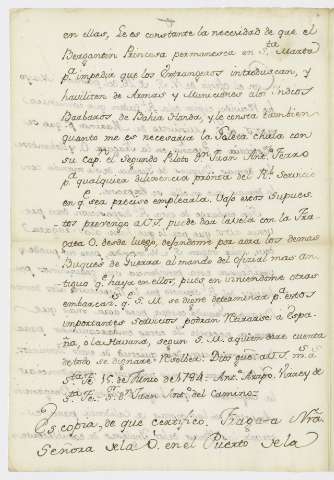 en ellas, le es constante la necesidad de que el
Bergantin Princesa permanesca en S.ta Marta
p.a impedir que los Extrangeros introduscan, y
haviliten de Armas y Municiones alos Indios
Barbaros de Bahia Honda, y le consta tambien
quanto me es necesaria la Goleta chata con
su Cap.n el Segundo Piloto d.n Juan Ant.o
p.a qualquiera diligencia pronta del R.l Servicio
en q.e sea preciso emplearla. Vajo estos Supues-
tos prevengo a U.S. puede dar ala vela con la Fra-
gata O. desde luego, dexandome por aora los demas
Buques de Guerra al mando del oficial mas an-
tiguo q.e haya en ellos, pues en viniendome otras
embarcas.s q.e S. M. se digne determinar p.a estos
importantes servicios podran retirarse à Espa-
ña, o la Havana, segun S. M. aquien dare cuenta
de todo se dignare resolver. Dios gue a U.S. m.s a.s
S.ta Fe 15 de Junio de 1784. Ant.o Arzpo. Virrey de
S.ta Fe. S.or D.n Juan Ant.o del Camino.
Es copia, de que certifico. Fragata Nrâ
Señora de la O. en el Puerto de la